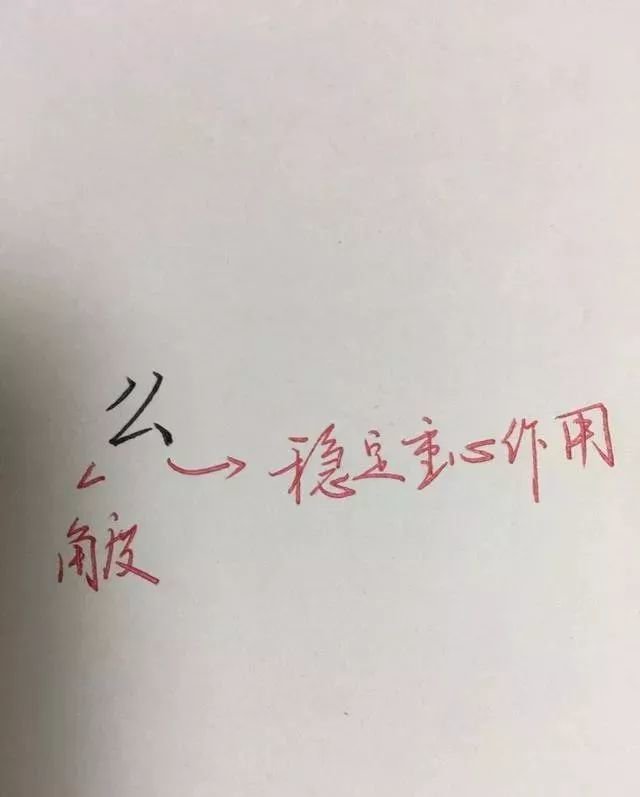 么
稳定重心作用
角度